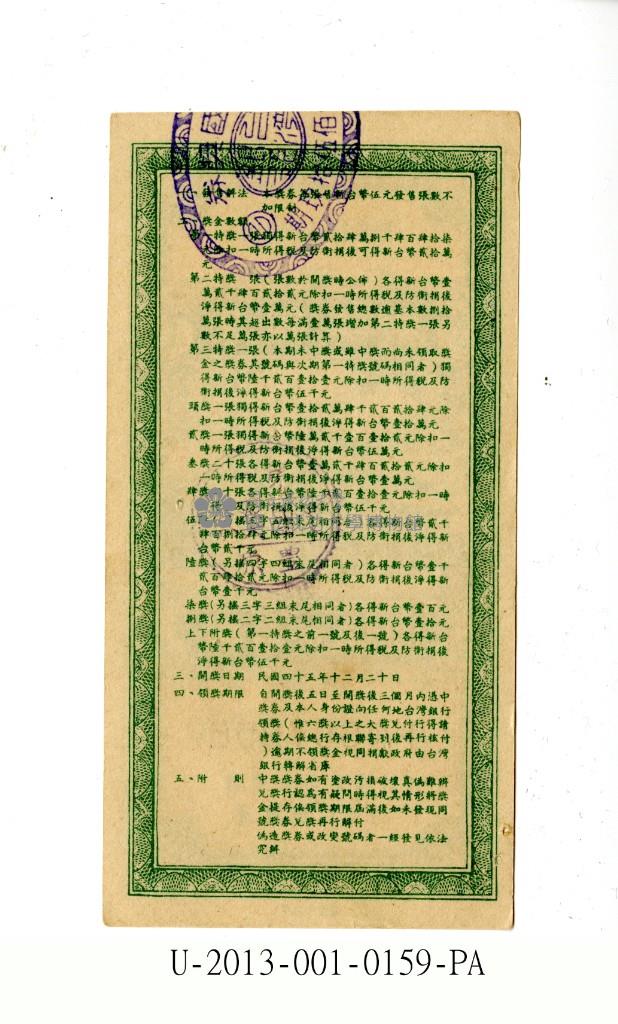 發售辦法　本獎券每張售新台幣伍元發售張數不
加限制
獎金數額
第一特獎一張獨得新台幣貳拾肆萬捌千肆百肆拾柒
元除扣一時所得稅及防衛捐後可得新台幣貳拾萬
元
第二特獎　張（張數於開獎時公佈）各得新台幣壹
萬貳千肆百貳拾貳元除扣一時所得稅及防衛捐後
淨得新台幣壹萬元（獎券發售總數逾基本數捌拾
萬張時其超出數每滿壹萬張增加第二特獎一張另
數不足萬張亦以萬張計算）
第三特獎一張（本期未中獎或雖中獎而尚未領取獎
金之獎券其號碼與次期第一特獎號碼相同者）獨
得新台幣陸千貳百壹拾壹元除扣一時所得稅及防
衛捐後淨得新台幣伍千元
頭獎一張獨得新台幣壹拾貳萬肆千貳百貳拾肆元除
扣一時所得稅及防衛捐後淨得新台幣壹拾萬元
貳獎一張獨得新台幣陸萬貳千壹百壹拾貳元除扣一
時所得稅及防衛捐後淨得新台幣伍萬元
叁獎二十張各得新台幣壹萬貳千肆百貳拾貳元除扣
一時所得稅及防衛捐後淨得新台幣壹萬元
肆獎　十張各得新台幣陸千貳百壹拾壹元除扣一時
所得稅及防衛捐後淨得新台幣伍千元
伍獎（另搖五字五組末尾相同者）各得新台幣貳千
肆百肆拾肆元除扣一時所得稅及防衛捐後淨得新
台幣貳千元
陸獎（另搖四字四組末尾相同者）各得新台幣壹千
貳百肆拾貳元除扣一時所得稅及防衛捐後淨得新
台幣壹千元
柒獎（另搖三字三組末尾相同者）各得新台幣壹百元
捌獎（另搖二字二組末尾相同者）各得新台幣壹拾元
上下附獎（第一特獎之前一號及後一號）各得新台
幣陸千貳百壹拾壹元除扣一時所得稅及防衛捐後
淨得新台幣伍千元
三、開獎日期　民國四十五年十二月二十日
四、領獎期限　自開獎後五日至開獎後三個月內憑中
獎券及本人身份證向任何地台灣銀行
領獎（惟六獎以上之大獎兌付行得請
持券人俟總行存根聯寄到後再行核付
）逾期不領獎金視同捐獻政府由台灣
銀行轉解省庫
五、附　則　中獎獎券如有塗改污損破壞真偽難辨
兌獎行認為有疑問時得視其情形將獎
金提存俟領獎期限屆滿後如未發現同
號獎券兌獎再行解付
偽造獎券或改變號碼者一經發見依法
究辦
U-2013-001-0159-PA